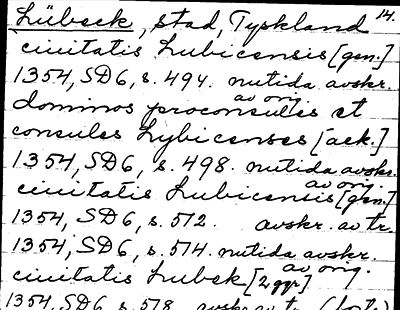 Lübeck, stad, Tyskland 14.
ciuitatis Lubicensis [gen.]
1354, SD6, s. 494. nutida avskr.
av orig.
dominos proconsules et
consules Lybicenses [ack.]
1354, SD6, s. 498. nutida avskr.
av orig.
ciuitatis Lubicensis [gen.]
1354, SD6, s. 512. avskr. av tr.
1354, SD6, s. 514. nutida avskr.
av orig.
ciuitatis Lubek [2 ggr]
1354, SD6, s. 578. avskr. av tr. (forts)